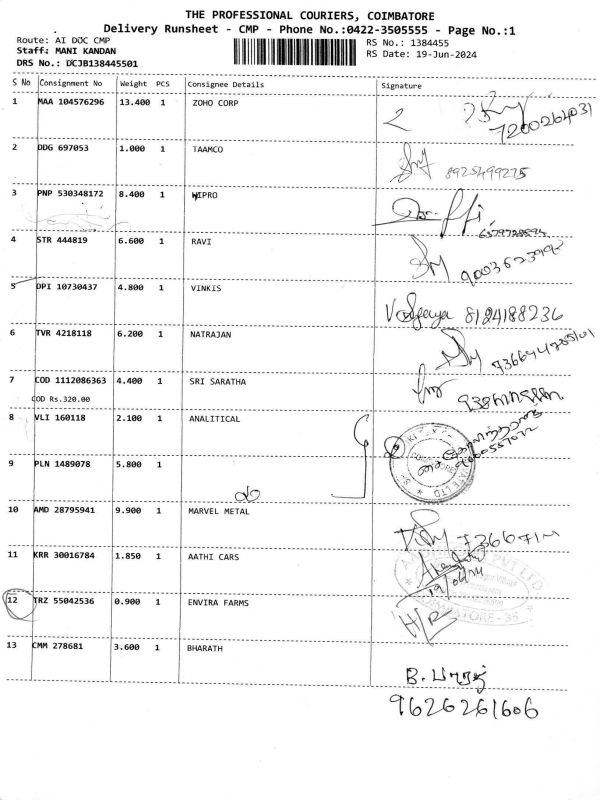 THE PROFESSIONAL COURIERS, COIMBATORE
Delivery Runsheet - CMP - Phone No.:0422-3505555 - Page No.:1
Route: AI DOC CMP
Staff: MANI KANDAN
DRS No.: DCJB138445501
RS No.: 1384455
RS Date: 19-Jun-2024
S No Consignment No Weight PCS Consignee Details Signature
1 MAA 104576296 13.400 1 ZOHO CORP
7200264031
2 DDG 697053 1.000 1 TAAMCO
8925499275
3 PNP 530348172 8.400 1 WIPRO
4 STR 444819 6.600 1 RAVI
9003623992
5 DPI 10730437 4.800 1 VINKIS
8124188236
6 TVR 4218118 6.200 1 NATRAJAN
7 COD 1112086363 4.400 1 SRI SARATHA
COD Rs.320.00
8 VLI 160118 2.100 1 ANALITICAL
9 PLN 1489078 5.800 1
10 AMD 28795941 9.900 1 MARVEL METAL
11 KRR 30016784 1.850 1 AATHI CARS
19/06/24
12 TRZ 55042536 0.900 1 ENVIRA FARMS
13 CMM 278681 3.600 1 BHARATH
B. பாரத்
9626261606